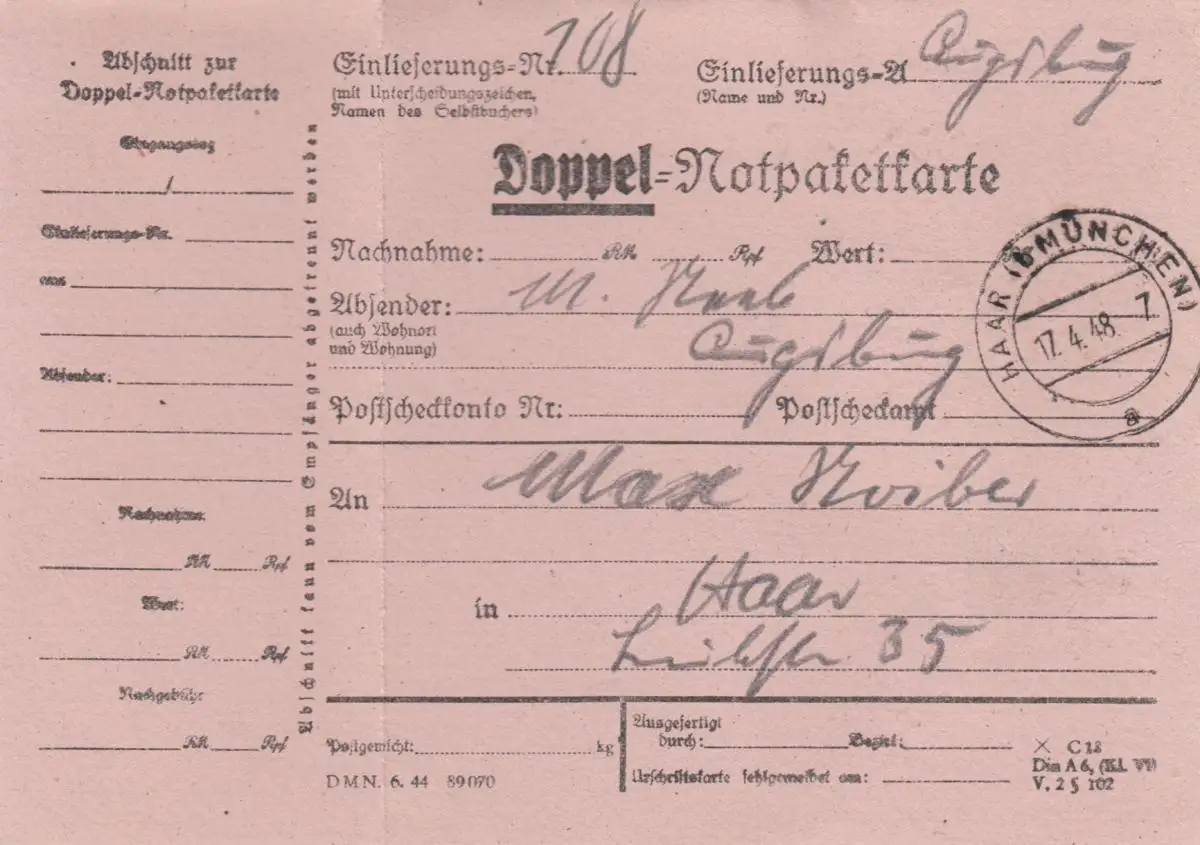 Abschnitt zur
Doppel-Notpaketkarte
Eingangsweg
/
Einlieferungs-Nr.
am
Absender:
Nachnahme
RM Rpf
Wert:
RM Rpf
Nachgebühr
RM Rpf
Abschnitt kann vom Empfänger abgetrennt werden
Einlieferungs-Nr. 108
(mit Unterscheidungszeichen,
Namen des Selbstbuchers)
Einlieferungs-A Augsburg
(Name und Nr.)
Doppel-Notpaketkarte
Nachnahme: RM Rpf Wert:
Absender: M.
(auch Wohnort
und Wohnung)
Augsburg
Postscheckkonto Nr: Postscheckamt
HAAR (b MÜNCHEN)
17.4.48. 7
a
An Max
in Haar
35
Postgewicht: kg
DMN. 6. 44 89070
Ausgefertigt
durch: Bezirk:
Urschriftskarte fehlgemeldet am:
× C 18
Din A 6, (Kl. VI)
V. 2 § 102